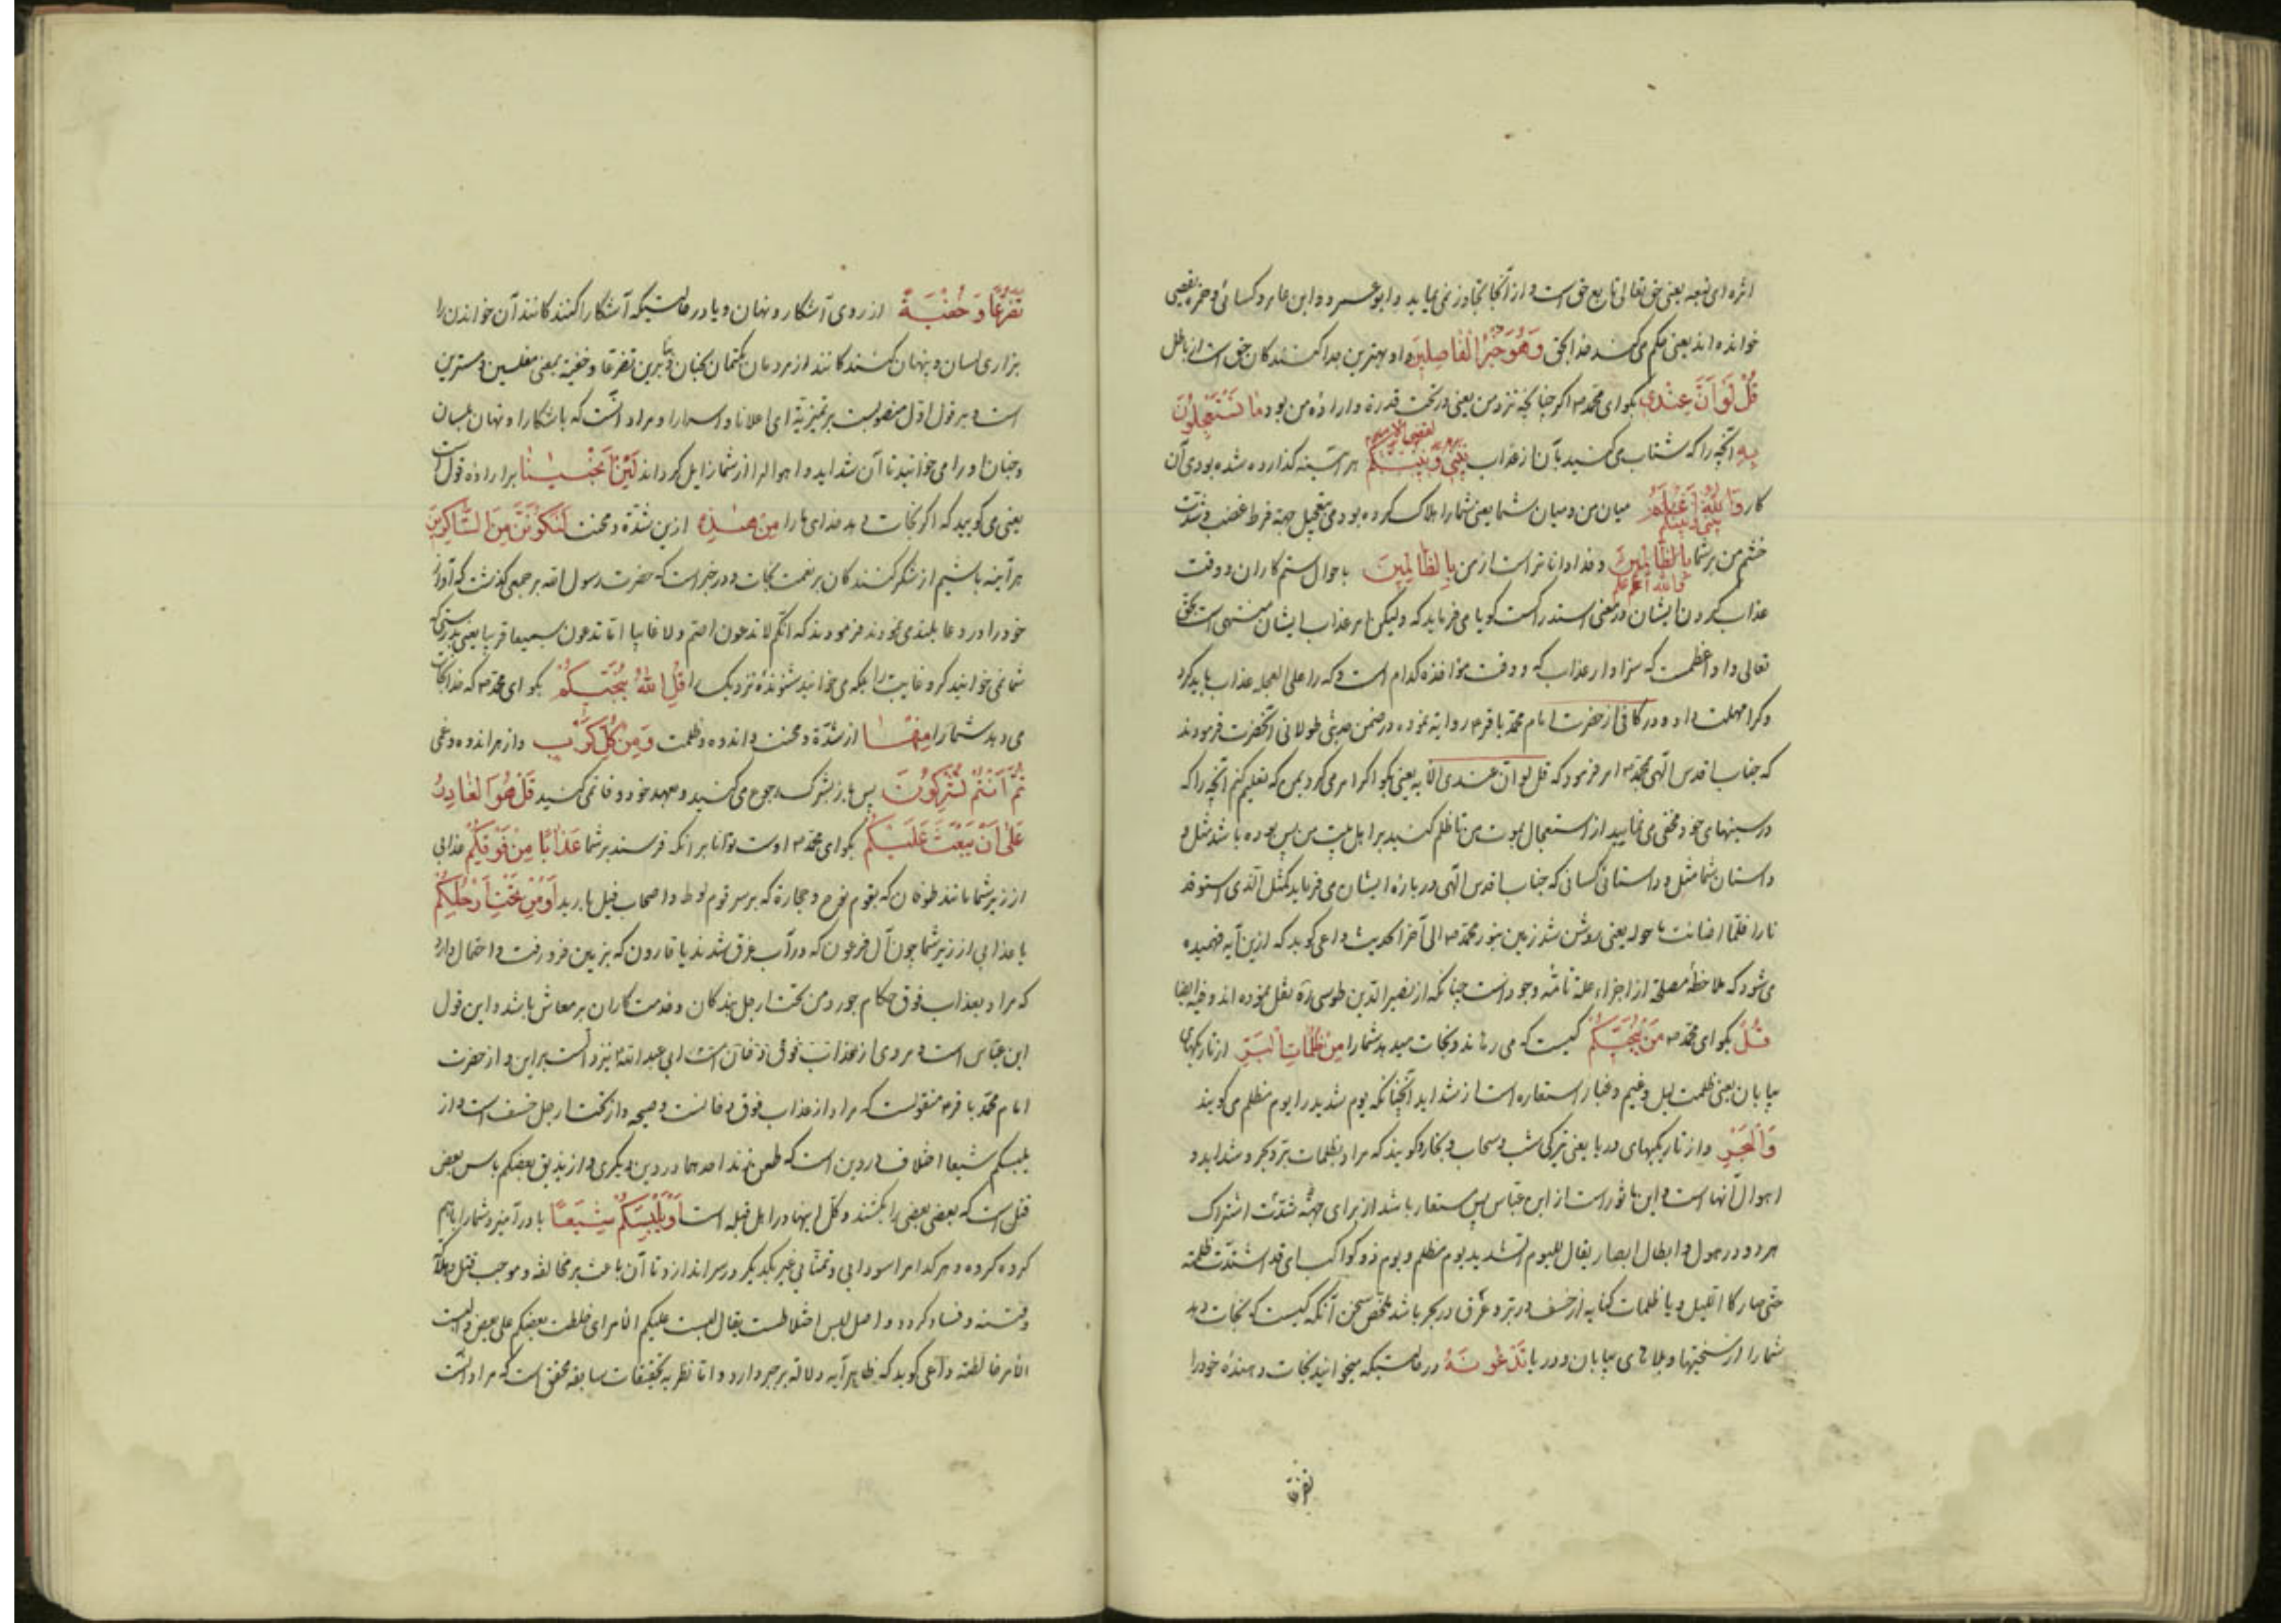 اثره ای تبعه یعنی حق تعالی تابع حق است و از آنجا تجاوز نمی‌نماید و ابوعمرو و ابن عامر و کسائی و حمزه یقضی
خوانده‌اند یعنی حکم می‌کند خدا بحق وَهُوَ خَیْرُ الْفاصِلینَ و او بهترین جدا کنندگان حق است از باطل
قُلْ لَوْ اَنَّ عِنْدی بکو ای محمد ص اکر چنانچه نزد من یعنی در تحت قدرة و ارادهٔ من بود ما تَسْتَعْجِلُونَ
بِهِ آنچه را که شتاب می‌کنید بآن از عذاب لقضی الامر بَیْنی وَبَیْنَکُمْ هر آینه گذارده شده بودی آن
کار وَاللهُ اَعْلَمُ میان من و میان شما یعنی شما را هلاک کرده بودمی بتعجیل جهة فرط غضب و شدت
خشم من بر شما بِالظّالِمینَ و خدا داناتر است از من بِالظّالِمینَ باحوال ستم کاران و وقت
عذاب کردن ایشان در معنی استدراکست کویا می‌فرماید که ولیکن امر عذاب ایشان منتهی است بحق
تعالی و او اعلمست که سزاوار عذاب که و وقت مؤاخذه کدام است و که را علی العجله عذاب باید کرد
و کرا مهلت داد و در کافی از حضرت امام محمد باقر ع روایة نموده در ضمن حدیثی طولانی آنحضرت فرمودند
که جناب اقدس الهی محمد ص امر فرمود که قل لو ان عندی الآیه یعنی بکو اکر امر می‌کردید بمن که تعلیم کنم آنچه را که
در سینهای خود مخفی می‌نمایید از استعجال بموت من تا ظلم کنید بر اهل بیت من پس بوده باشد مثل و
داستان شما مثل و داستانی کسانی که جناب اقدس الهی در بارهٔ ایشان می‌فرماید کمثل الذی استوقد
نارا فلما اضائت ما حوله یعنی روشن شد زمین بنور محمد ص الی آخر الحدیث داعی کوید که ازین آیه فهمیده
می‌شود که ملاحظهٔ مصلحة از اجزاء علة تامّه وجود است چنانکه از نصیر الدین طوسی ره نقل نموده‌اند و فیه ایضا
قُلْ بکو ای محمد ص مَنْ یُنَجّیکُمْ کیست که می‌رهاند و نجات میدهد شما را مِنْ ظُلُماتِ الْبَرِّ از تاریکیهای
بیابان یعنی ظلمت لیل و غیم و غبار استعاره است از شداید آنچنانکه یوم شدید را یوم مظلم می‌کویند
وَالْبَحْرِ و از تاریکیهای دریا یعنی تیرکی شب و سحاب و بخار و کویند که مراد بظلمات بر و بحر و شداید و
اهوال آنها است و این ماثور است از ابن عباس پس مستعار باشد از برای جهة شدّت اشتراک
هر دو در هول و ابطال ابصار یقال للیوم الشدید یوم مظلم و یوم ذو کواکب ای قد اشتدّت ظلمته
حتی صار کاللیل و یا ظلمات کنایه از خسف در بر و غرق در بحر باشد ملخّص سخن آنکه کیست که نجات دهد
شما را از سختیها و بلاهای بیابان و دریا تَدْعُونَهُ در حالتیکه میخوانید نجات دهندهٔ خود را
تضرعا
تَضَرُّعًا وَخُفْیَةً از روی آشکار و نهان و یا در حالتیکه آشکارا کنند کانند آن خواندن را
بزاری لسان و پنهان کنند کانند از مردمان بکتمان جنان و بنابرین تضرعا و خفیة بمعنی معلنین و مسرین
است و بر قول اوّل منصوبست بر تمیزیّة ای اعلانا و اسرارا و مراد آنست که باشکارا و نهان بلسان
و جنان او را می‌خوانید تا آن شداید و اهوال را از شما زایل کرداند لَئِنْ اَنْجَیْتَنا بر ارادهٔ قول است
یعنی می‌کویید که اکر نجات دهد خدای ما را مِنْ هذِهِ ازین شدّة و محنت لَنَکُونَنَّ مِنَ الشّاکِرینَ
هر آینه باشیم از شکر کنندکان بر نعمت نجات و در خبر است که حضرت رسول الله بر جمعی کذشت که آواز
خود را در دعا بلند می‌نمودند فرمودند که انکم لا تدعون اصم و لا غایبا انما تدعون سمیعا قریبا یعنی بدرستی که
شما نمی‌خوانید کر و غایب را بلکه می‌خوانید شنوندهٔ نزدیک را قُلِ اللهُ یُنَجّیکُمْ بکو ای محمد ص که خدا نجات
می‌دهد شما را مِنْها از شدّة و محنت و اندوه و ظلمت وَمِنْ کُلِّ کَرْبٍ و از هر اندوه و غمی
ثُمَّ اَنْتُمْ تُشْرِکُونَ پس باز بشرک رجوع می‌کنید و بعهد خود وفا نمی‌کنید قُلْ هُوَ الْقادِرُ
عَلی اَنْ یَبْعَثَ عَلَیْکُمْ بکو ای محمد ص اوست توانا بر آنکه فرستد بر شما عَذابًا مِنْ فَوْقِکُمْ عذابی
از زبر شما مانند طوفان که بقوم نوح و حجارة که بر سر قوم لوط و اصحاب فیل بارید اَوْ مِنْ تَحْتِ اَرْجُلِکُمْ
یا عذابی از زیر شما چون آل فرعون که در آب غرق شدند یا قارون که بزمین فرو رفت و احتمال دارد
که مراد بعذاب فوق حکام جور و من تحت ارجل بندکان و خدمت کاران بد معاش باشد و این قول
ابن عباس است و مروی از ابی عبد الله نیز دالست بر این و از حضرت
امام محمد باقر ع منقولست که مراد از عذاب فوق دخانست و صیحه و از تحت ارجل خسف است و از
یلبسکم شیعا اختلاف در دین است که طعن زند احدهما در دین دیکری و از یذیق بعضکم باس بعض
قتل است که بعضی بعضی را بکشند و کل اینها در اهل قبله است اَوْ یَلْبِسَکُمْ شِیَعًا یا در آمیزد شما را با هم
کروه کروه و هر کدام را سودایی و تمنّایی غیر یکدیکر در سر اندازد تا آن باعث بر مخالفه و موجب قتل و هلاک
و فتنه و فساد کردد و اصل لبس اختلاطست یقال لبست علیکم الامر ای خلطت بعضکم علی بعض و لابست
الامر خالطته داعی کوید که ظاهر آیه دلالة بر جبر دارد و اما نظر به تحقیقات سابقه محقق است که مراد آنست